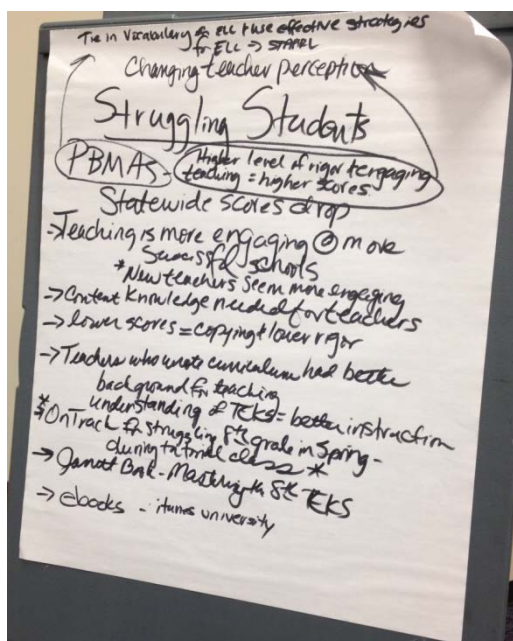 Tie in Vocabulary for ELL & use effective strategies
for ELL → STAAR L
Changing teacher perception
Struggling Students
PBMAS - Higher level of rigor & engaging
teaching = higher scores.
Statewide scores drop
→ Teaching is more engaging @ more
successful schools
* New teachers seem more engaging
→ Content knowledge needed for teachers
→ lower scores = copying & lower rigor
→ Teachers who wrote curriculum had better
background for teaching
understanding of TEKS = better instruction
* → OnTrack for struggling 8th grade in Spring -
during tutorial class *
→ Book - Mastering the 8th TEKS
→ ebooks - itunes university